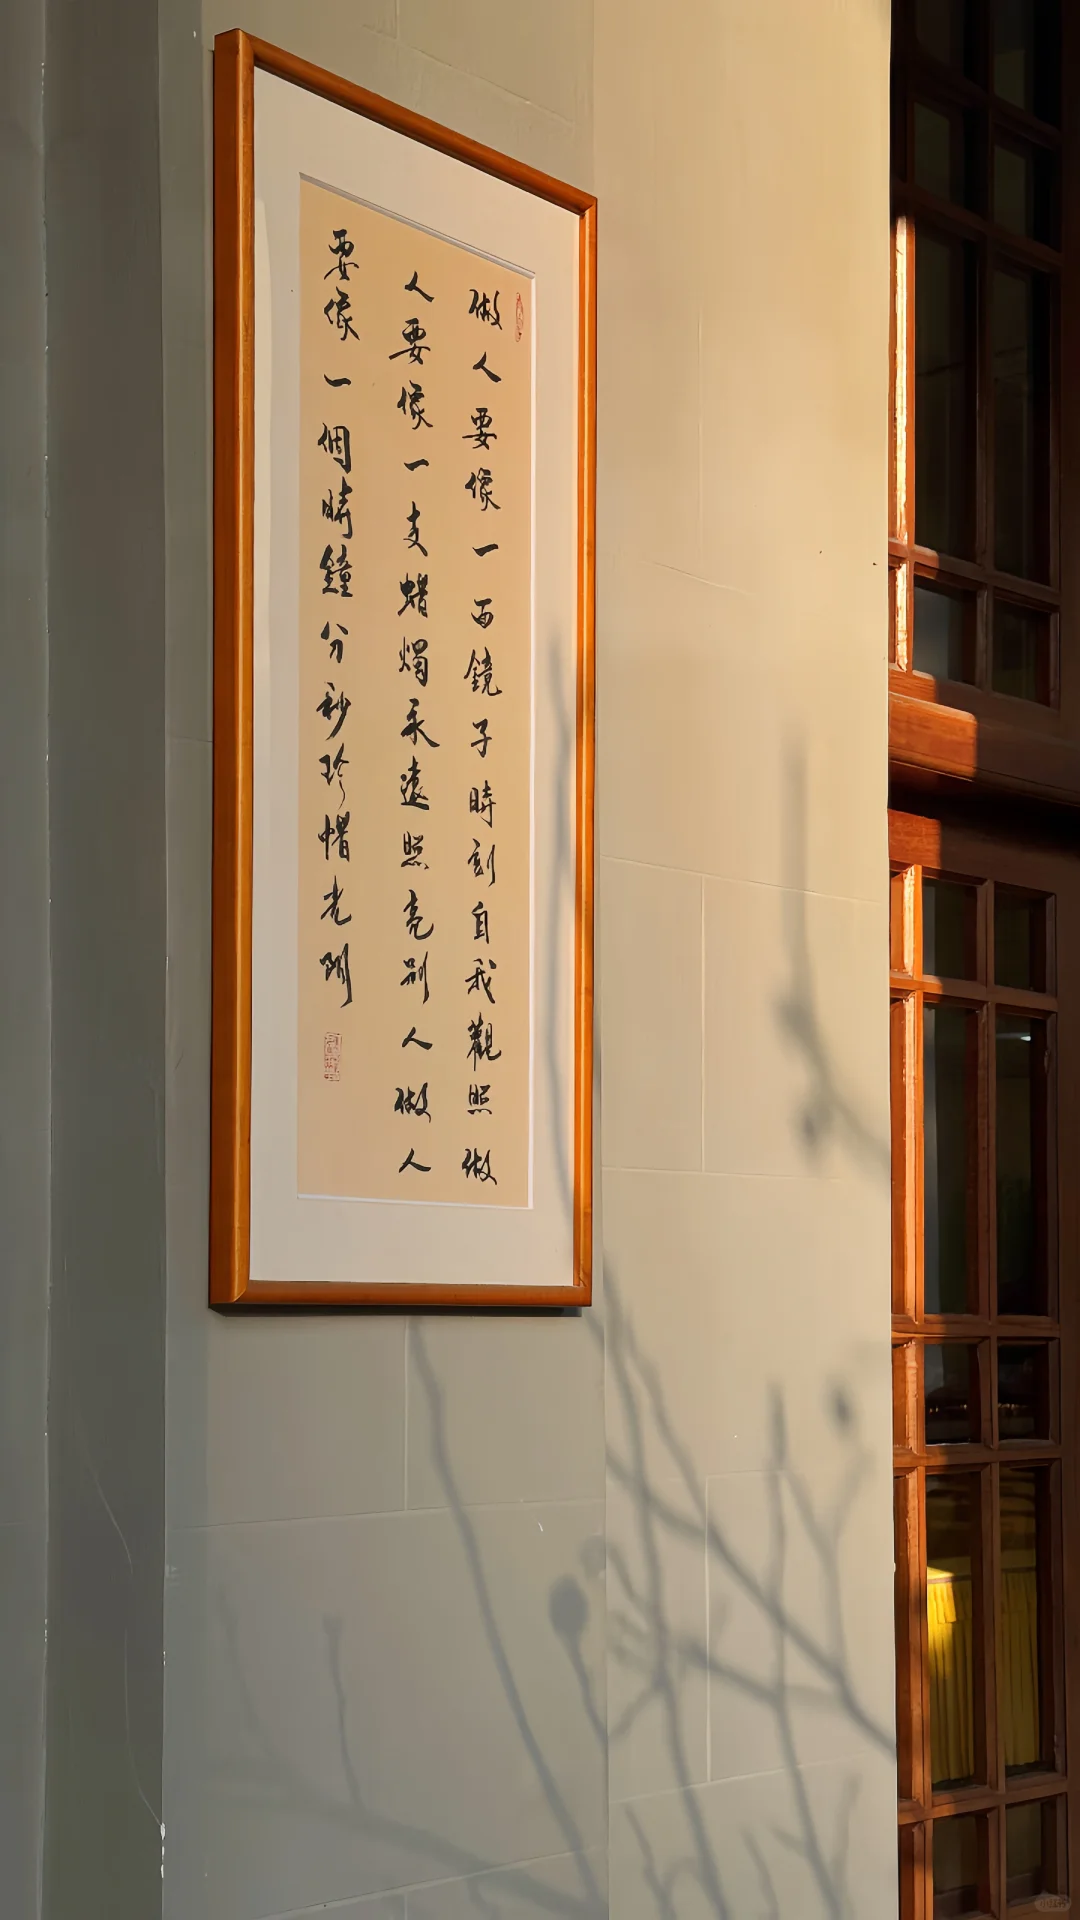 做人要像一面鏡子時刻自我觀照做
人要像一支蠟燭永遠照亮別人做人
要像一個時鐘分秒珍惜光陰